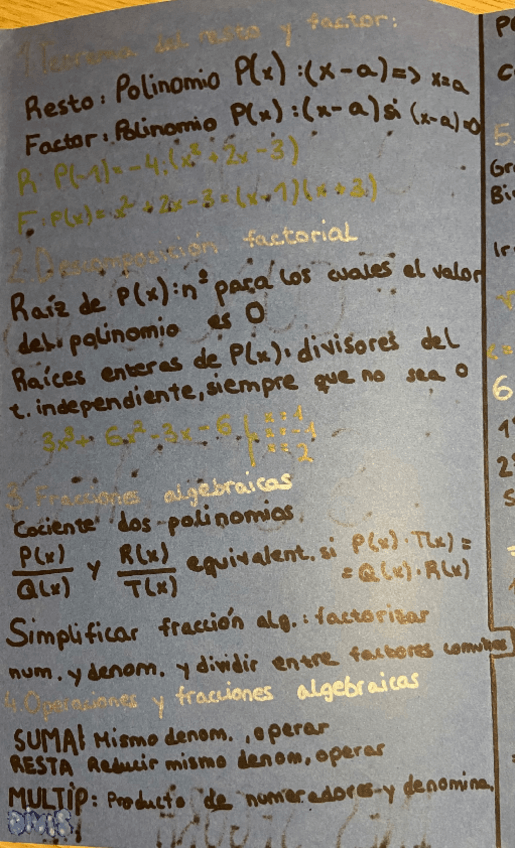 1. Teorema del resto y factor:
Resto: Polinomio P(x):(x-a)=> x=a
Factor: Polinomio P(x):(x-a) si (x-a)=0
P(-1)=-4:(x² + 2x -3)
F: P(x)= x² + 2x -3 = (x-1)(x+3)
2. Descomposición factorial
Raíz de P(x): nº para los cuales el valor
del polinomio es 0
Raíces enteras de P(x): divisores del
t. independiente, siempre que no sea 0
3x³ + 6x² -3x -6 x=1
x=-1
2
3. Fracciones algebraicas
Cociente dos polinomios
P(x)/Q(x) y R(x)/T(x) equivalent. si P(x)·T(x)=
=Q(x)·R(x)
Simplificar fracción alg.: factorizar
num. y denom. y dividir entre factores comunes
4. Operaciones y fracciones algebraicas
SUMA| Mismo denom., operar
RESTA Reducir mismo denom, operar
MULTIP: Producto de numeradores y denomina.
P
C
5.
Gr
Bi
Ir
6
1º
2º
S